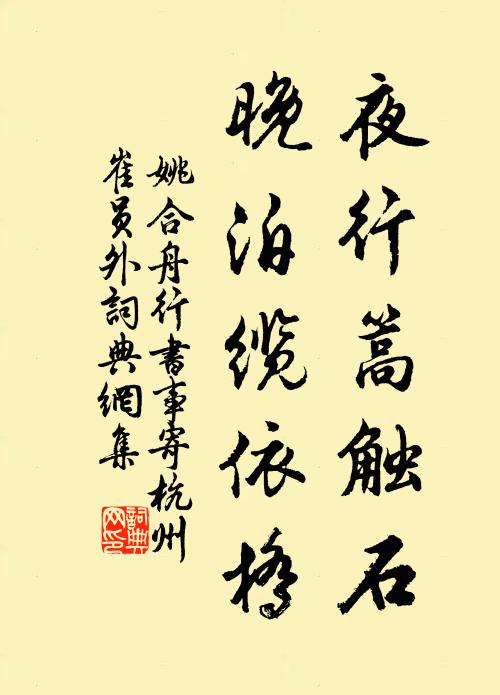 夜行篙触石
晚泊缆依桥
姚合舟行書事寄杭州
崔員外詞典網集
詞典
网印